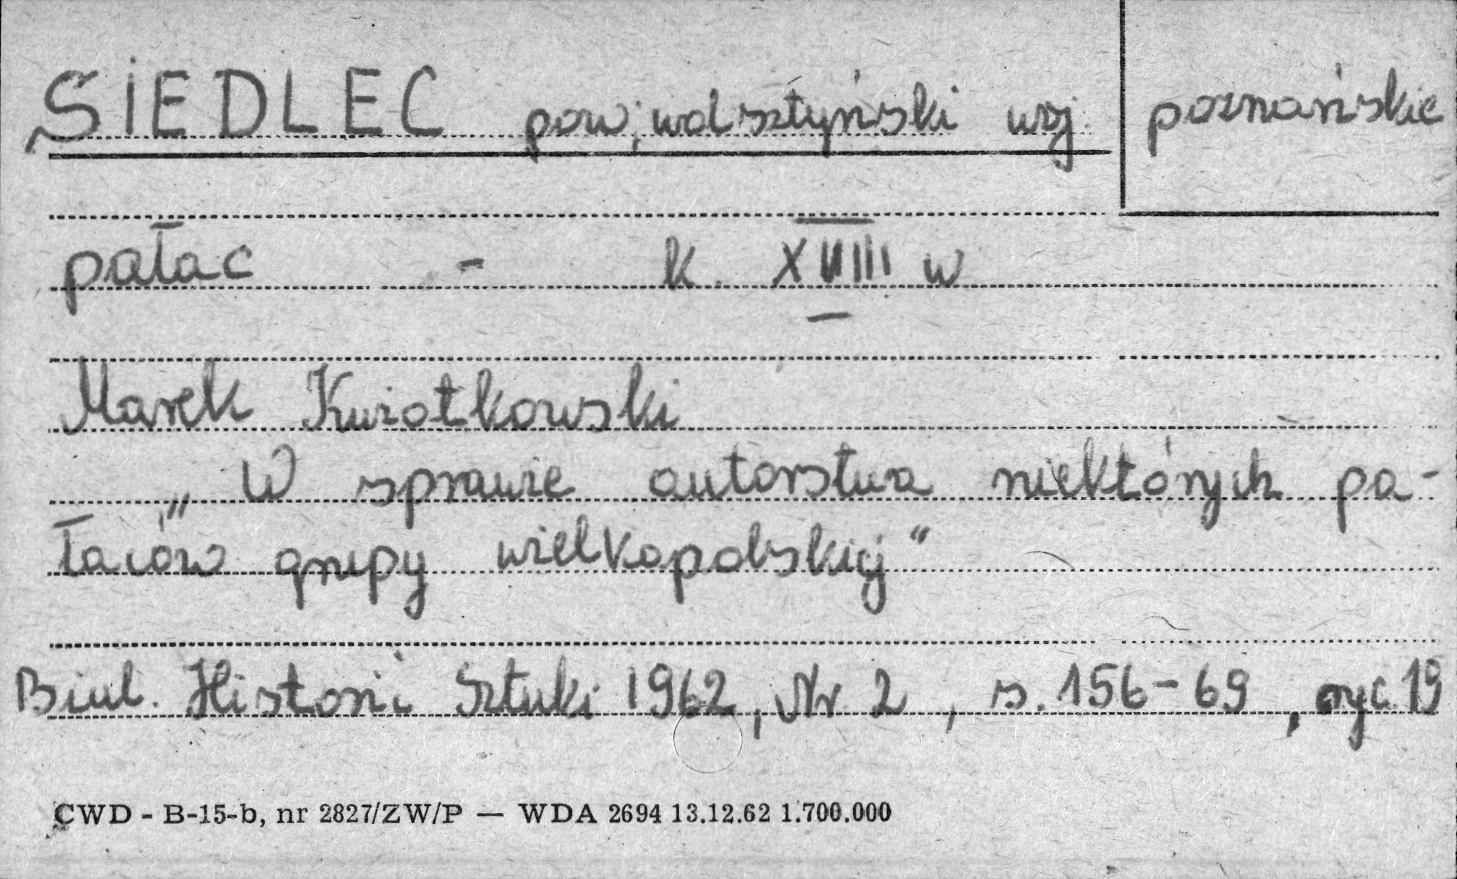 SIEDLEC pow. wolsztyński woj. poznańskie
pałac - k. XVIII w
Marek Kwiatkowski
„W sprawie autorstwa niektórych pa-
łaców grupy wielkopolskiej“
Biul. Historii Sztuki 1962, Nr 2, s. 156-69, ryc 19
CWD - B-15-b, nr 2827/ZW/P — WDA 2694 13.12.62 1.700.000